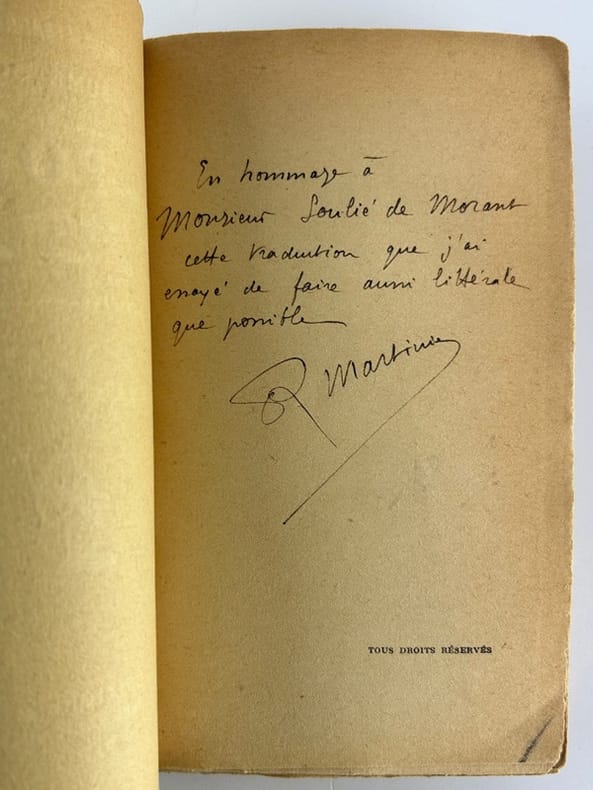 En hommage à
Monsieur Soulié de Morant
cette traduction que j'ai
essayé de faire aussi littérale
que possible
R Martinie
TOUS DROITS RÉSERVÉS